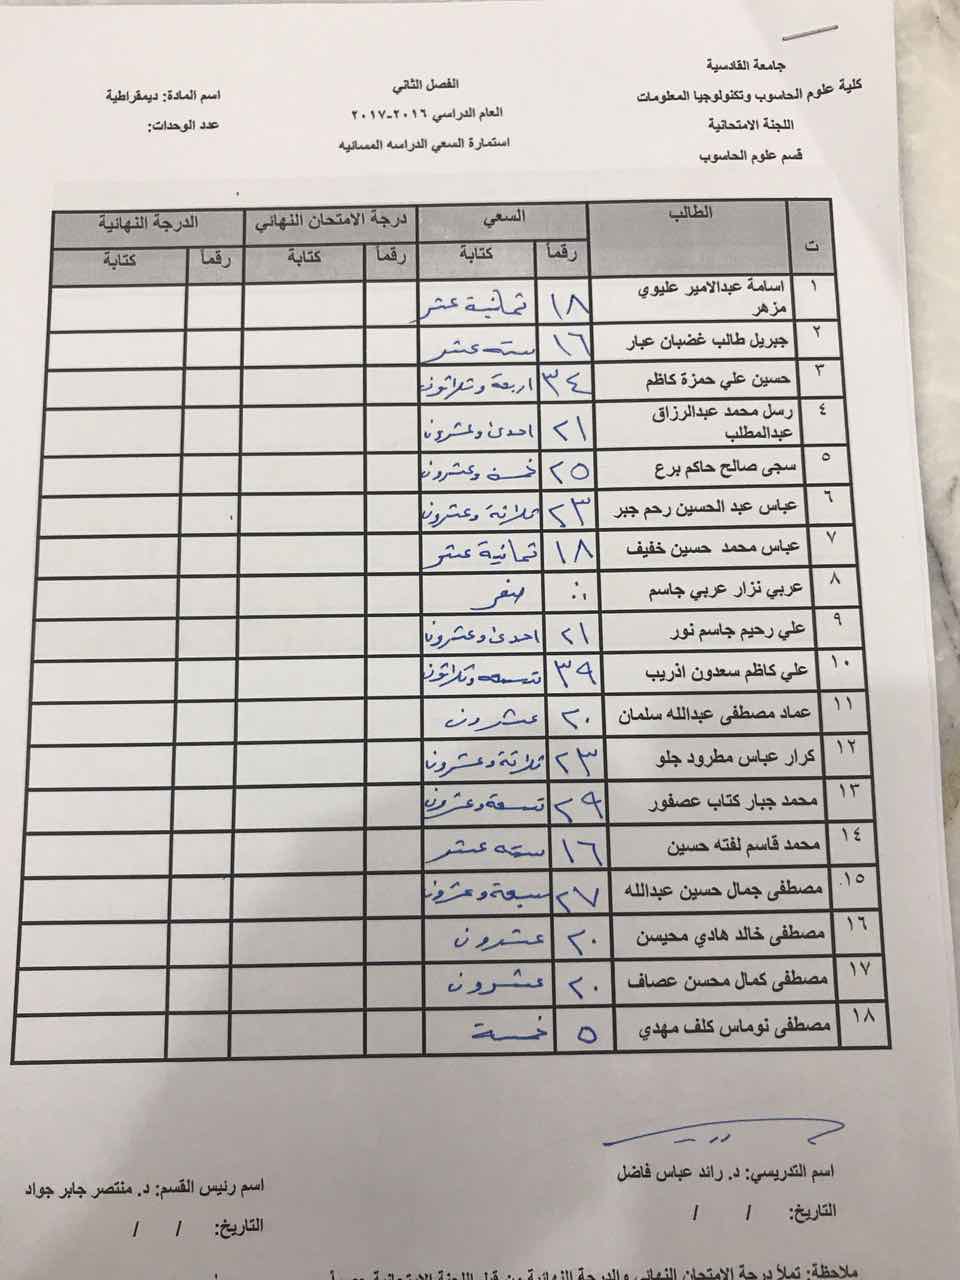 جامعة القادسية
كلية علوم الحاسوب وتكنولوجيا المعلومات
اللجنة الامتحانية
قسم علوم الحاسوب
الفصل الثاني
العام الدراسي ٢٠١٦-٢٠١٧
استمارة السعي الدراسه المسائيه
اسم المادة: ديمقراطية
عدد الوحدات:
ت الطالب السعي درجة الامتحان النهائي الدرجة النهائية
رقماً كتابة رقماً كتابة رقماً كتابة
١ اسامة عبدالامير عليوي مزهر ١٨ ثمانية عشر
٢ جبريل طالب غضبان عبار ١٦ سته عشر
٣ حسين علي حمزة كاظم ٣٤ اربعة وثلاثون
٤ رسل محمد عبدالرزاق عبدالمطلب ٢١ احدى وعشرون
٥ سجى صالح حاكم برع ٢٥ خمسة وعشرون
٦ عباس عبد الحسين رحم جبر ٢٣ ثلاثة وعشرون
٧ عباس محمد حسين خفيف ١٨ ثمانية عشر
٨ عربي نزار عربي جاسم صفر
٩ علي رحيم جاسم نور ٢١ احدى وعشرون
١٠ علي كاظم سعدون اذريب ٣٩ تسعه وثلاثون
١١ عماد مصطفى عبدالله سلمان ٢٠ عشرون
١٢ كرار عباس مطرود جلو ٢٣ ثلاثة وعشرون
١٣ محمد جبار كتاب عصفور ٢٩ تسعة وعشرون
١٤ محمد قاسم لفته حسين ١٦ سته عشر
١٥ مصطفى جمال حسين عبدالله ٢٧ سبعة وعشرون
١٦ مصطفى خالد هادي محيسن ٢٠ عشرون
١٧ مصطفى كمال محسن عصاف ٢٠ عشرون
١٨ مصطفى نوماس كلف مهدي ٥ خمسة
اسم التدريسي: د. رائد عباس فاضل
التاريخ: / /
اسم رئيس القسم: د. منتصر جابر جواد
التاريخ: / /
ملاحظة: تملأ درجة الامتحان النهائي والدرجة النهائية من قبل اللجنة الامتحانية